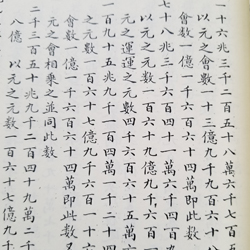 一十六兆三千二百五十八萬六千七百五
以元之會數一十三億九千九百六
會數一億一千六百六十四萬即此數
七十八兆三千六百四十一萬六千
以元之元數一百六十七億九千六百
元之運運之元數四千六百六十五萬
一百九十五兆九千一百四萬一千二十四
之元數一百六十七億九千六百一十六
會數一億一千六百六十四萬即此數又
元之會相乘之並同此數
二千三百五十兆九千二百四十九萬二千
八億 以元之元數一百六十七億九千